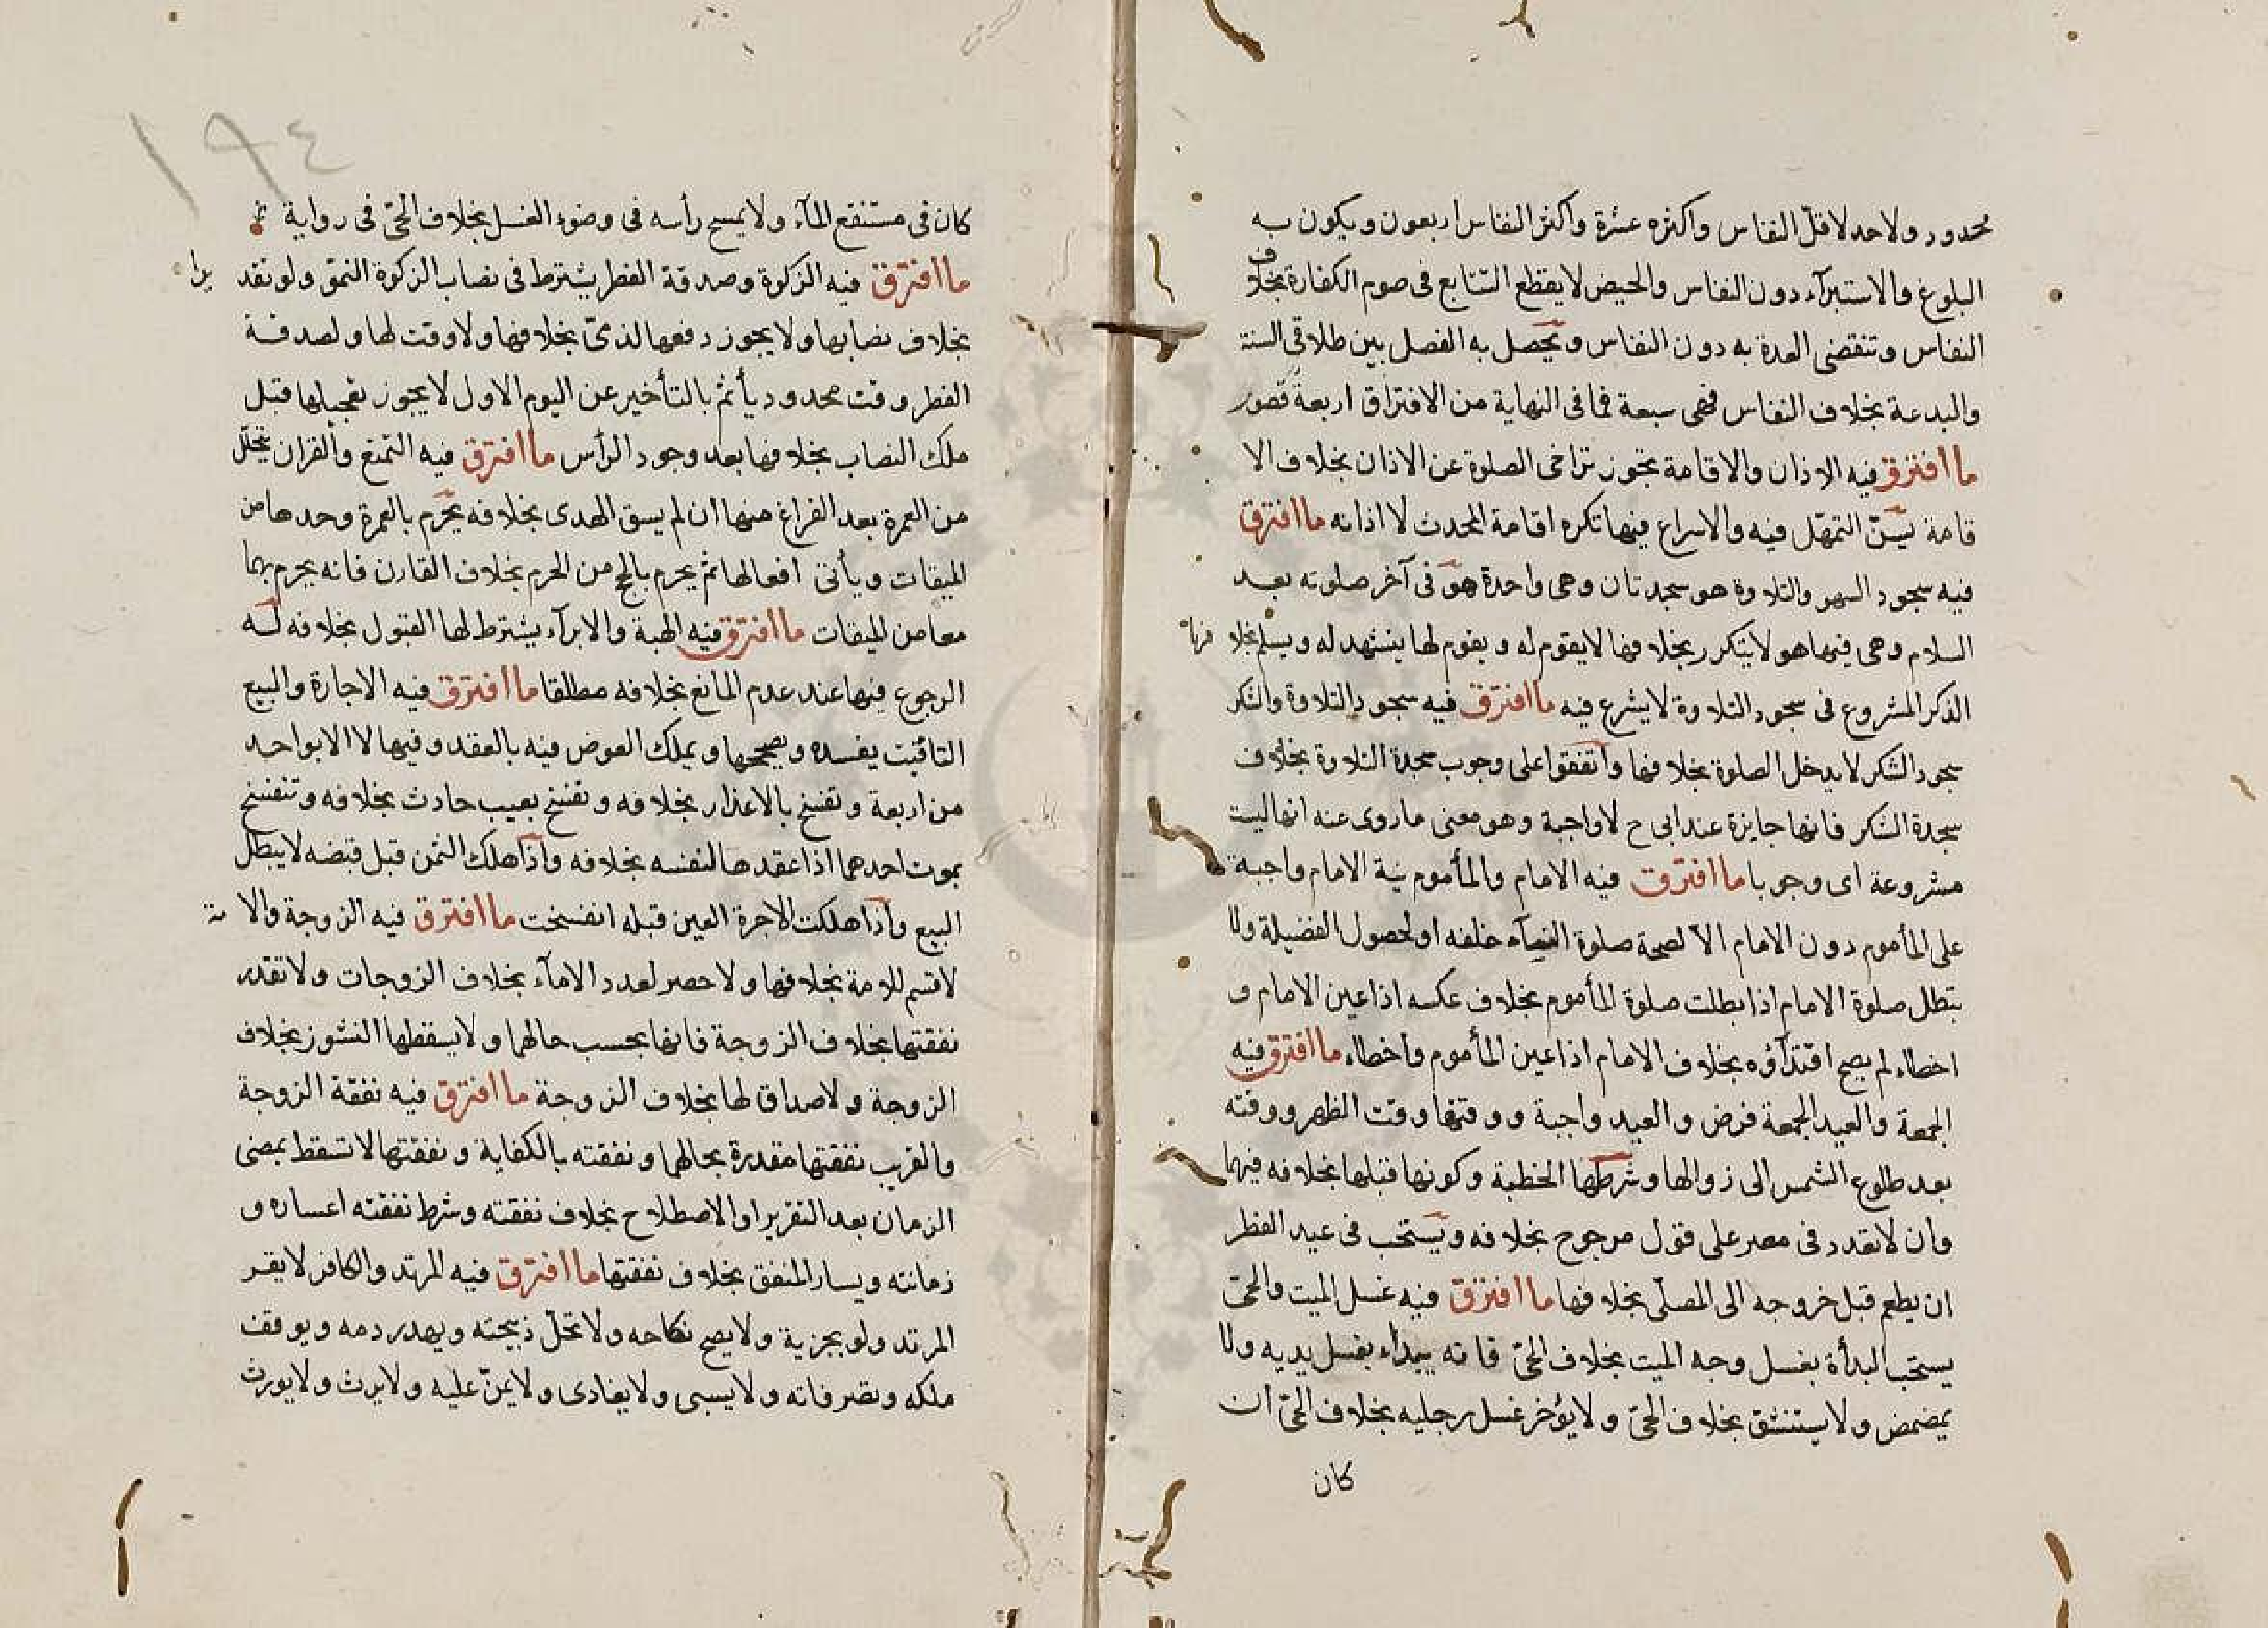 محدود ولا حد لاقلّ النفاس واكثره عشرة واكثر النفاس اربعون ويكون به
البلوغ والاستبرآء دون النفاس والحيض لا يقطع التتابع فى صوم الكفارة بخلاف
النفاس وتنقضى العدة به دون النفاس ويحصل به الفصل بين طلاقى السنة
والبدعة بخلاف النفاس فهى سبعة فما فى النهاية من الافتراق اربعة قصور
ما افترق فيه الاذان والاقامة يجوز تراخى الصلوة عن الاذان بخلاف الا
قامة يسنّ التمهّل فيه والاسراع فيها تكره اقامة المحدث لا اذانه ما افترق
فيه سجود السهو والتلاوة هو سجدتان وهى واحدة هو فى آخر صلوته بعد
السلام وهى فيها هو لا يتكرر بخلافها لا يقوم له ويقوم لها يتشهد له ويسلم بخلا فها
الذكر المشروع فى سجود التلاوة لا يشرع فيه ما افترق فيه سجود التلاوة والشكر
سجود الشكر لا يدخل الصلوة بخلافها واتفقوا على وجوب سجدة التلاوة بخلاف
سجدة الشكر فانها جايزة عند ابى ح لا واجبة وهو معنى ما روى عنه انها ليست
مشروعة اى وجوبا ما افترق فيه الامام والمأموم نية الامام واجبة
على المأموم دون الامام الا لصحة صلوة النسآء خلفه او لحصول الفضيلة ولا
تبطل صلوة الامام اذا بطلت صلوة المأموم بخلاف عكسه اذا عين الامام و
اخطاء لم يصح اقتدآؤه بخلاف الامام اذا عين المأموم واخطاء ما افترق فيه
الجمعة والعيد الجمعة فرض والعيد واجبة ووقتها وقت الظهر ووقته
بعد طلوع الشمس الى زوالها وشرطها الخطبة وكونها قبلها بخلافه فيهما
وان لا تعدد فى مصر على قول مرجوح بخلافه ويستحب فى عيد الفطر
ان يطعم قبل خروجه الى المصلّى بخلافها ما افترق فيه غسل الميت والحىّ
يستحب البدأة بغسل وجه الميت بخلاف الحىّ فانه يبداء بغسل يديه ولا
يمضمض ولا يستنشق بخلاف الحىّ ولا يؤخر غسل رجليه بخلاف الحىّ ان
كان
١٩٤
كان فى مستنقع المآء ولا يمسح رأسه فى وضوء الغسل بخلاف الحىّ فى رواية
ما افترق فيه الزكوة وصدقة الفطر يشترط فى نصاب الزكوة النمو ولو تقد يرا
بخلاف نصابها ولا يجوز دفعها لذمىّ بخلافها ولا وقت لها ولصدقة
الفطر وقت محدود يأثم بالتأخير عن اليوم الاول لا يجوز تعجيلها قبل
ملك النصاب بخلافها بعد وجود الرأس ما افترق فيه التمتع والقران يتحلل
من العمرة بعد الفراغ منها ان لم يسق الهدى بخلافه يحرم بالعمرة وحدها من
الميقات ويأتى افعالها ثم يحرم بالحج من الحرم بخلاف القارن فانه يحرم بهما
معا من الميقات ما افترق فيه الهبة والابرآء يشترط لها القبول بخلافه له
الرجوع فيها عند عدم المانع بخلافه مطلقا ما افترق فيه الاجارة والبيع
التاقيت يفسده ويصححها ويملك العوض فيه بالعقد وفيها لا الا بواحد
من اربعة وتفسخ بالاعذار بخلافه وتفسخ بعيب حادث بخلافه وتنفسخ
بموت احدهما اذا عقدها لنفسه بخلافه واذا هلك الثمن قبل قبضه لا يبطل
البيع واذا هلكت الاجرة العين قبله انفسخت ما افترق فيه الزوجة والا مة
لا قسم للامة بخلافها ولا حصر لعدد الامآء بخلاف الزوجات ولا تقدر
نفقتها بخلاف الزوجة فانها بحسب حالهما ولا يسقطها النشوز بخلاف
الزوجة ولا صداق لها بخلاف الزوجة ما افترق فيه نفقة الزوجة
والقريب نفقتها مقدرة بحالهما ونفقته بالكفاية ونفقتها لا تسقط بمضى
الزمان بعد التقرير او الاصطلاح بخلاف نفقته وشرط نفقته اعساره و
زمانته ويسار المنفق بخلاف نفقتها ما افترق فيه المرتد والكافر لا يقر
المرتد ولو بجزية ولا يصح نكاحه ولا تحلّ ذبيحته ويهدر دمه ويوقف
ملكه وتصرفاته ولا يسبى ولا يفادى ولا يمنّ عليه ولا يرث ولا يورث